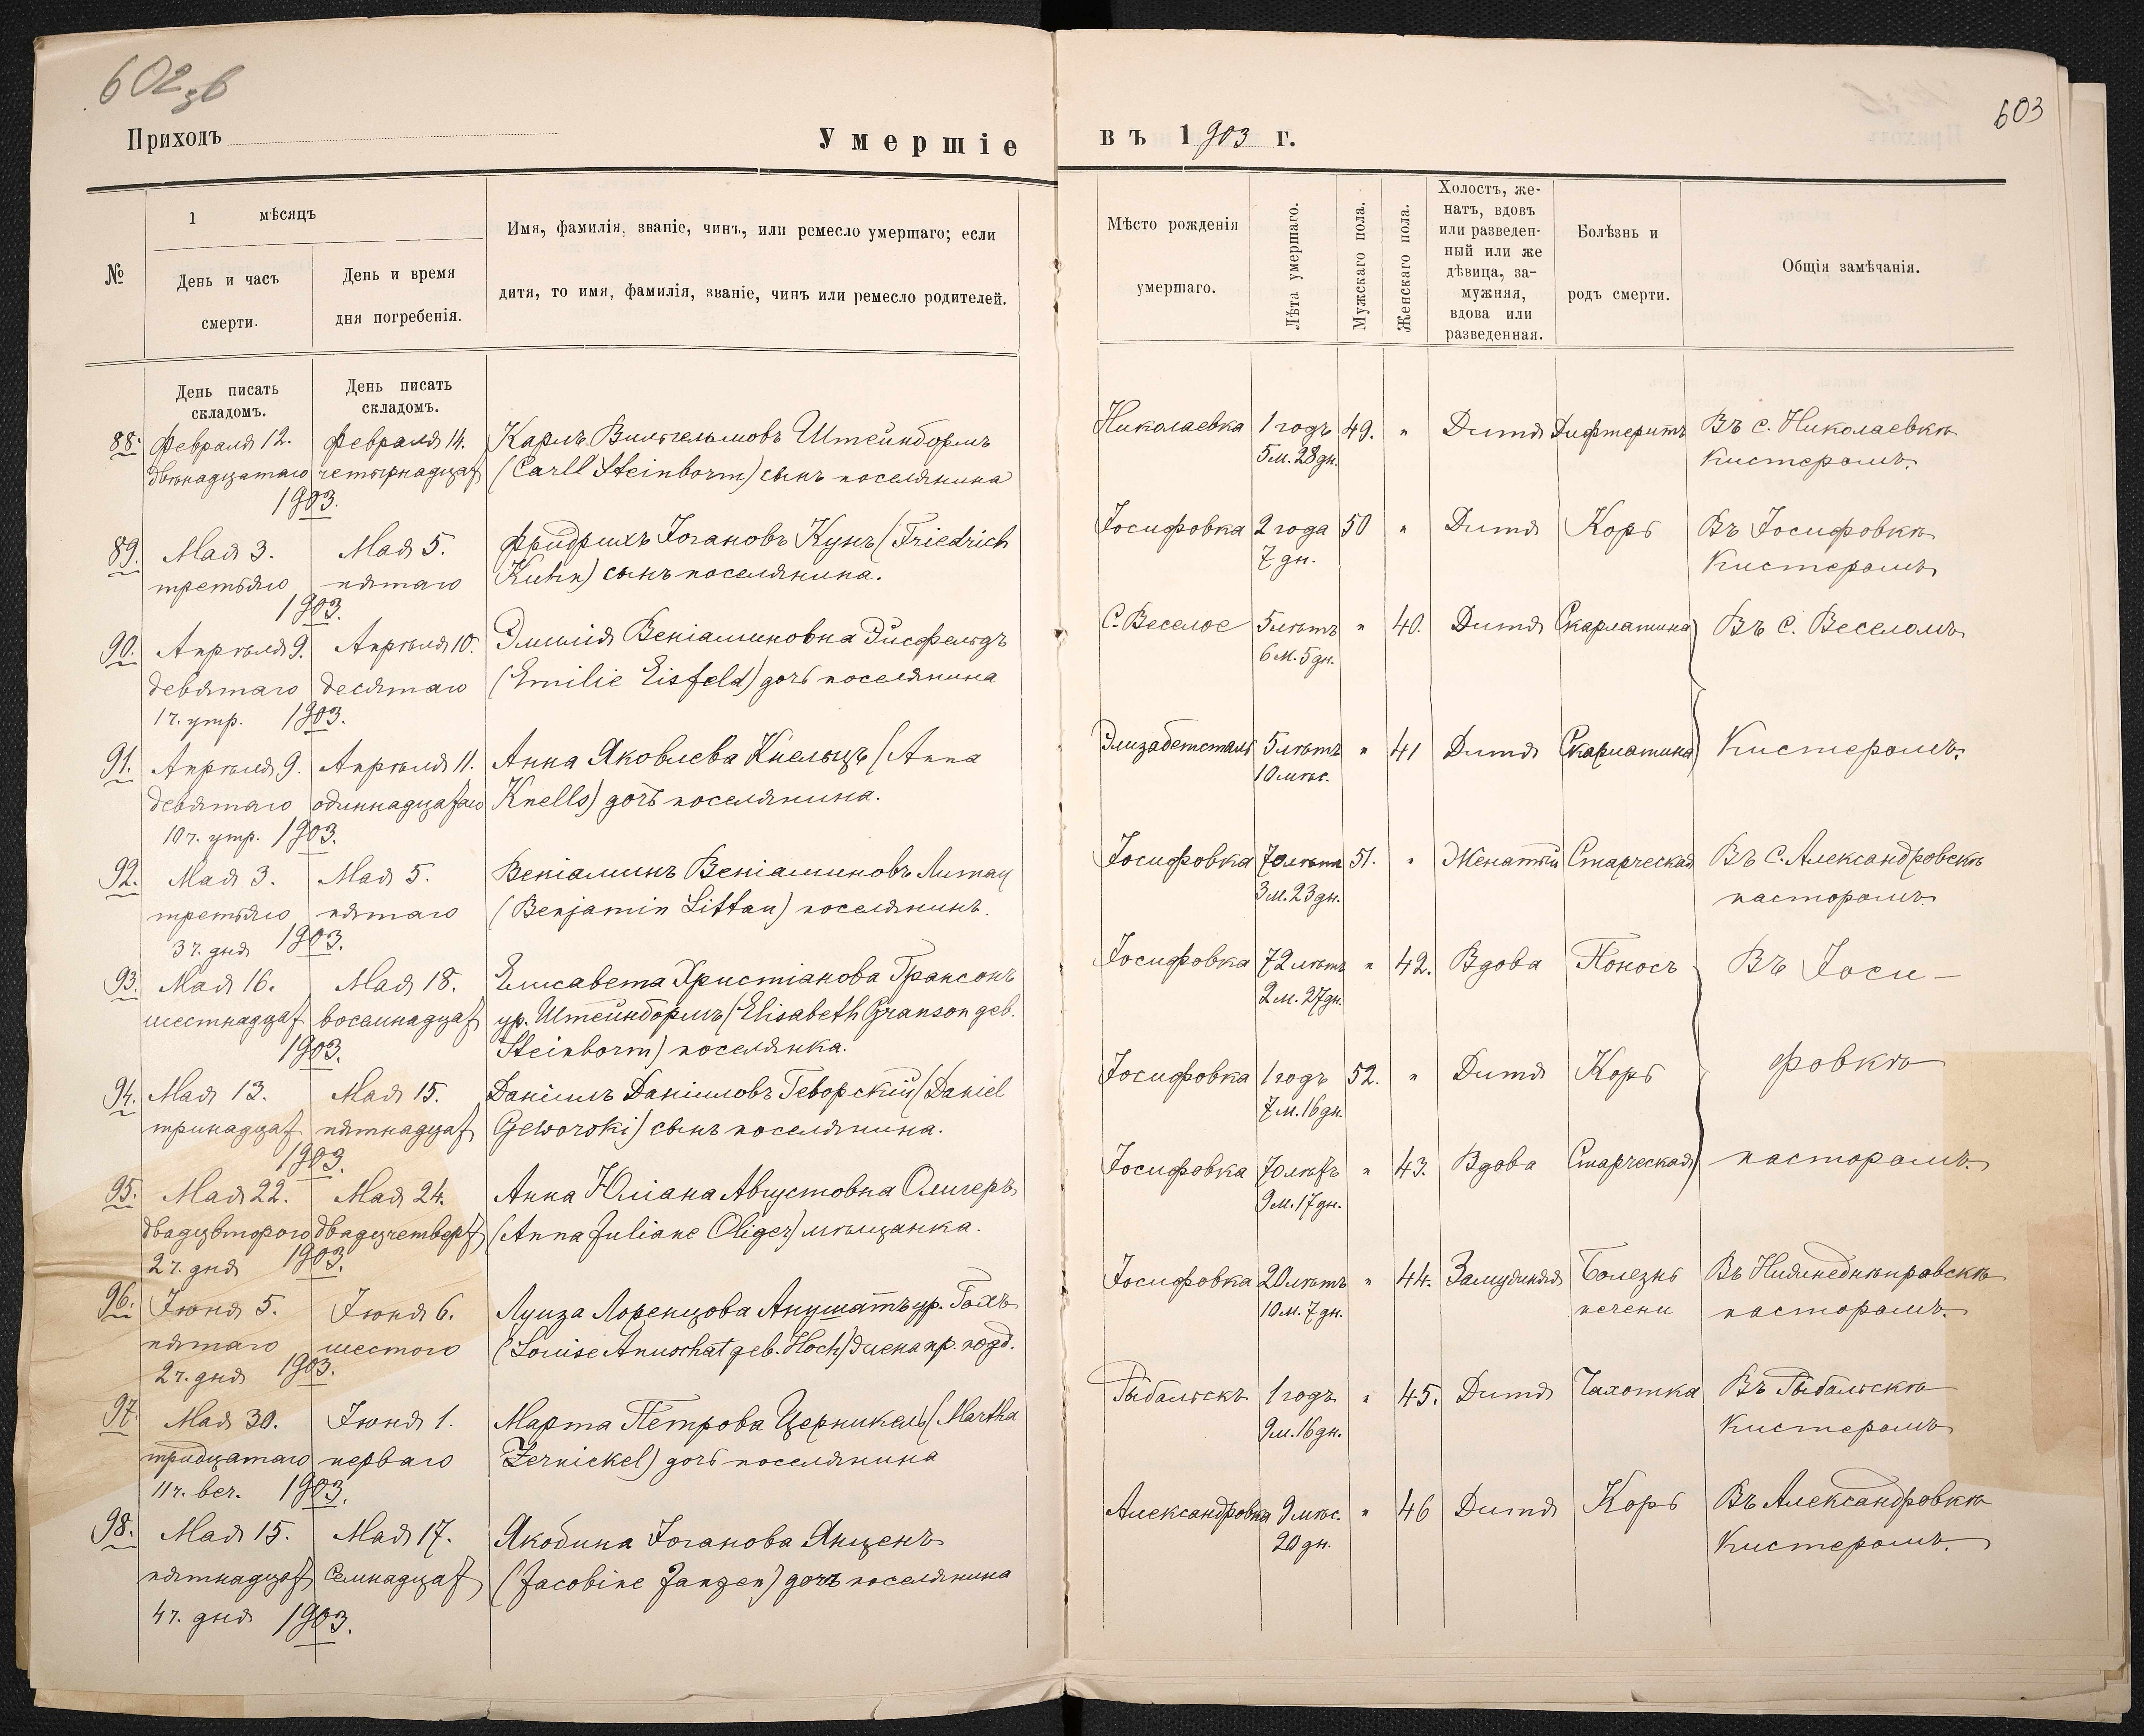 602 зв
Приходъ
Умершіе
№
1 мѣсяцъ
День и часъ
смерти.
День и время
дня погребенія.
Имя, фамилія, званіе, чинъ, или ремесло умершаго; если
дитя, то имя, фамилія, званіе, чинъ или ремесло родителей.
День писать
складомъ.
День писать
складомъ.
88. Февраля 12. Февраля 14. Карлъ Вильгельмовъ Штейнбормъ
двѣнадцатаго четырнадцат (Carll Steinborm) сынъ поселянина
1903.
89. Мая 3. Мая 5. Фридрихъ Іогановъ Кунъ (Friedrich
третьяго пятаго Kuhn) сынъ поселянина.
1903.
90. Апрѣля 9. Апрѣля 10. Эмилія Веніаминовна Эйсфельдъ
девятаго десятаго (Emilie Eisfeld) дочь поселянина
1 ч. утр. 1903.
91. Апрѣля 9. Апрѣля 11. Анна Яковлева Кнельцъ (Anna
девятаго одиннадцатаго Knells) дочь поселянина.
10 ч. утр. 1903.
92. Мая 3. Мая 5. Веніаминъ Веніаминовъ Литау
третьяго пятаго (Benjamin Littau) поселянинъ.
3 ч. дня 1903.
93. Мая 16. Мая 18. Елисавета Христіанова Грансонъ
шестнадцат восемнадцат ур. Штейнбормъ (Elisabeth Granson geb.
1903. Steinborm) поселянка.
94. Мая 13. Мая 15. Даніилъ Даніиловъ Геворскій (Daniel
тринадцат пятнадцат Geworski) сынъ поселянина.
1903.
95. Мая 22. Мая 24. Анна Юліана Августовна Олигеръ
двадцвторого двадцчетверт (Anna Juliane Oliger) мѣщанка.
2 ч. дня 1903.
96. Іюня 5. Іюня 6. Луиза Лоренцова Анушатъ ур. Гохъ
пятаго шестого (Louise Anuschat geb. Hoch) жена пр. подд.
2 ч. дня 1903.
97. Мая 30. Іюня 1. Марта Петрова Церникель (Martha
тридцатаго перваго Zernickel) дочь поселянина
11 ч. веч. 1903.
98. Мая 15. Мая 17. Якобина Іоганова Янценъ
пятнадцат семнадцат (Jacobine Janzen) дочь поселянина
4 ч. дня 1903.
603
въ 1903 г.
Мѣсто рожденія
умершаго.
Лѣта умершаго.
Мужскаго пола.
Женскаго пола.
Холостъ, же-
натъ, вдовъ
или разведен-
ный или же
дѣвица, за-
мужняя,
вдова или
разведенная.
Болѣзнь и
родъ смерти.
Общія замѣчанія.
Николаевка 1 годъ 49. " Дитя Дифтеритъ Въ с. Николаевкѣ
5 м. 28 дн. Кистеромъ.
Іосифовка 2 года 50 " Дитя Корь Въ Іосифовкѣ
7 дн. Кистеромъ
С. Веселое 5 лѣтъ " 40. Дитя Скарлатина Въ с. Веселомъ
6 м. 5 дн.
Элизабетсталь 5 лѣтъ " 41 Дитя Скарлатина Кистеромъ.
10 мѣс.
Іосифовка 70 лѣтъ 51. " Женатый Старческая Въ С. Александровскѣ
3 м. 23 дн. пасторомъ.
Іосифовка 72 лѣтъ " 42. Вдова Поносъ Въ Іоси-
2 м. 27 дн.
Іосифовка 1 годъ 52. " Дитя Корь фовкѣ
7 м. 16 дн.
Іосифовка 70 лѣтъ " 43. Вдова Старческая пасторомъ.
9 м. 17 дн.
Іосифовка 20 лѣтъ " 44. Замужняя Болезнь Въ Нижнеднѣпровскѣ
10 м. 7 дн. печени пасторомъ.
Рыбальскъ 1 годъ " 45. Дитя Чахотка Въ Рыбальскѣ
9 м. 16 дн. Кистеромъ
Александровка 9 мѣс. " 46 Дитя Корь Въ Александровкѣ
20 дн. Кистеромъ.